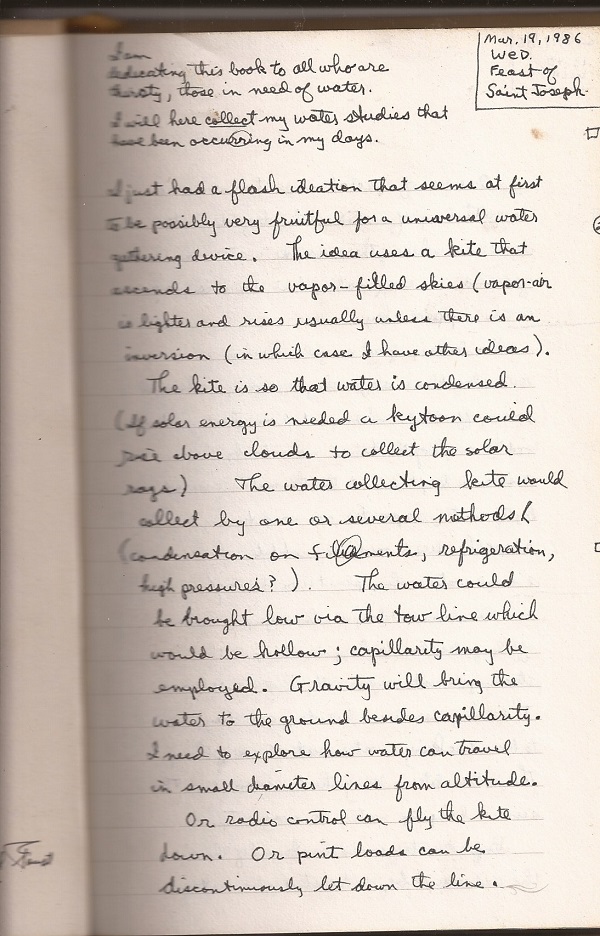 Mar. 19, 1986
WED.
Feast of
Saint Joseph.
I am
dedicating this book to all who are
thirsty, those in need of water.
I will here collect my water studies that
have been occurring in my days.
I just had a flash ideation that seems at first
to be possibly very fruitful for a universal water
gethering device. The idea uses a kite that
ascends to the vapor-filled skies (vapor-air
is lighter and rises usually unless there is an
inversion (in which case I have other ideas).
The kite is so that water is condensed.
(If solar energy is needed a kytoon could
rise above clouds to collect the solar
rays) The water collecting kite would
collect by one or several methods (
(condensation on filaments, refrigeration,
high pressures?). The water could
be brought low via the tow line which
would be hollow; capillarity may be
employed. Gravity will bring the
water to the ground besides capillarity.
I need to explore how water can travel
in small diameter lines from altitude.
Or radio control can fly the kite
down. Or pint loads can be
discontinuously let down the line.